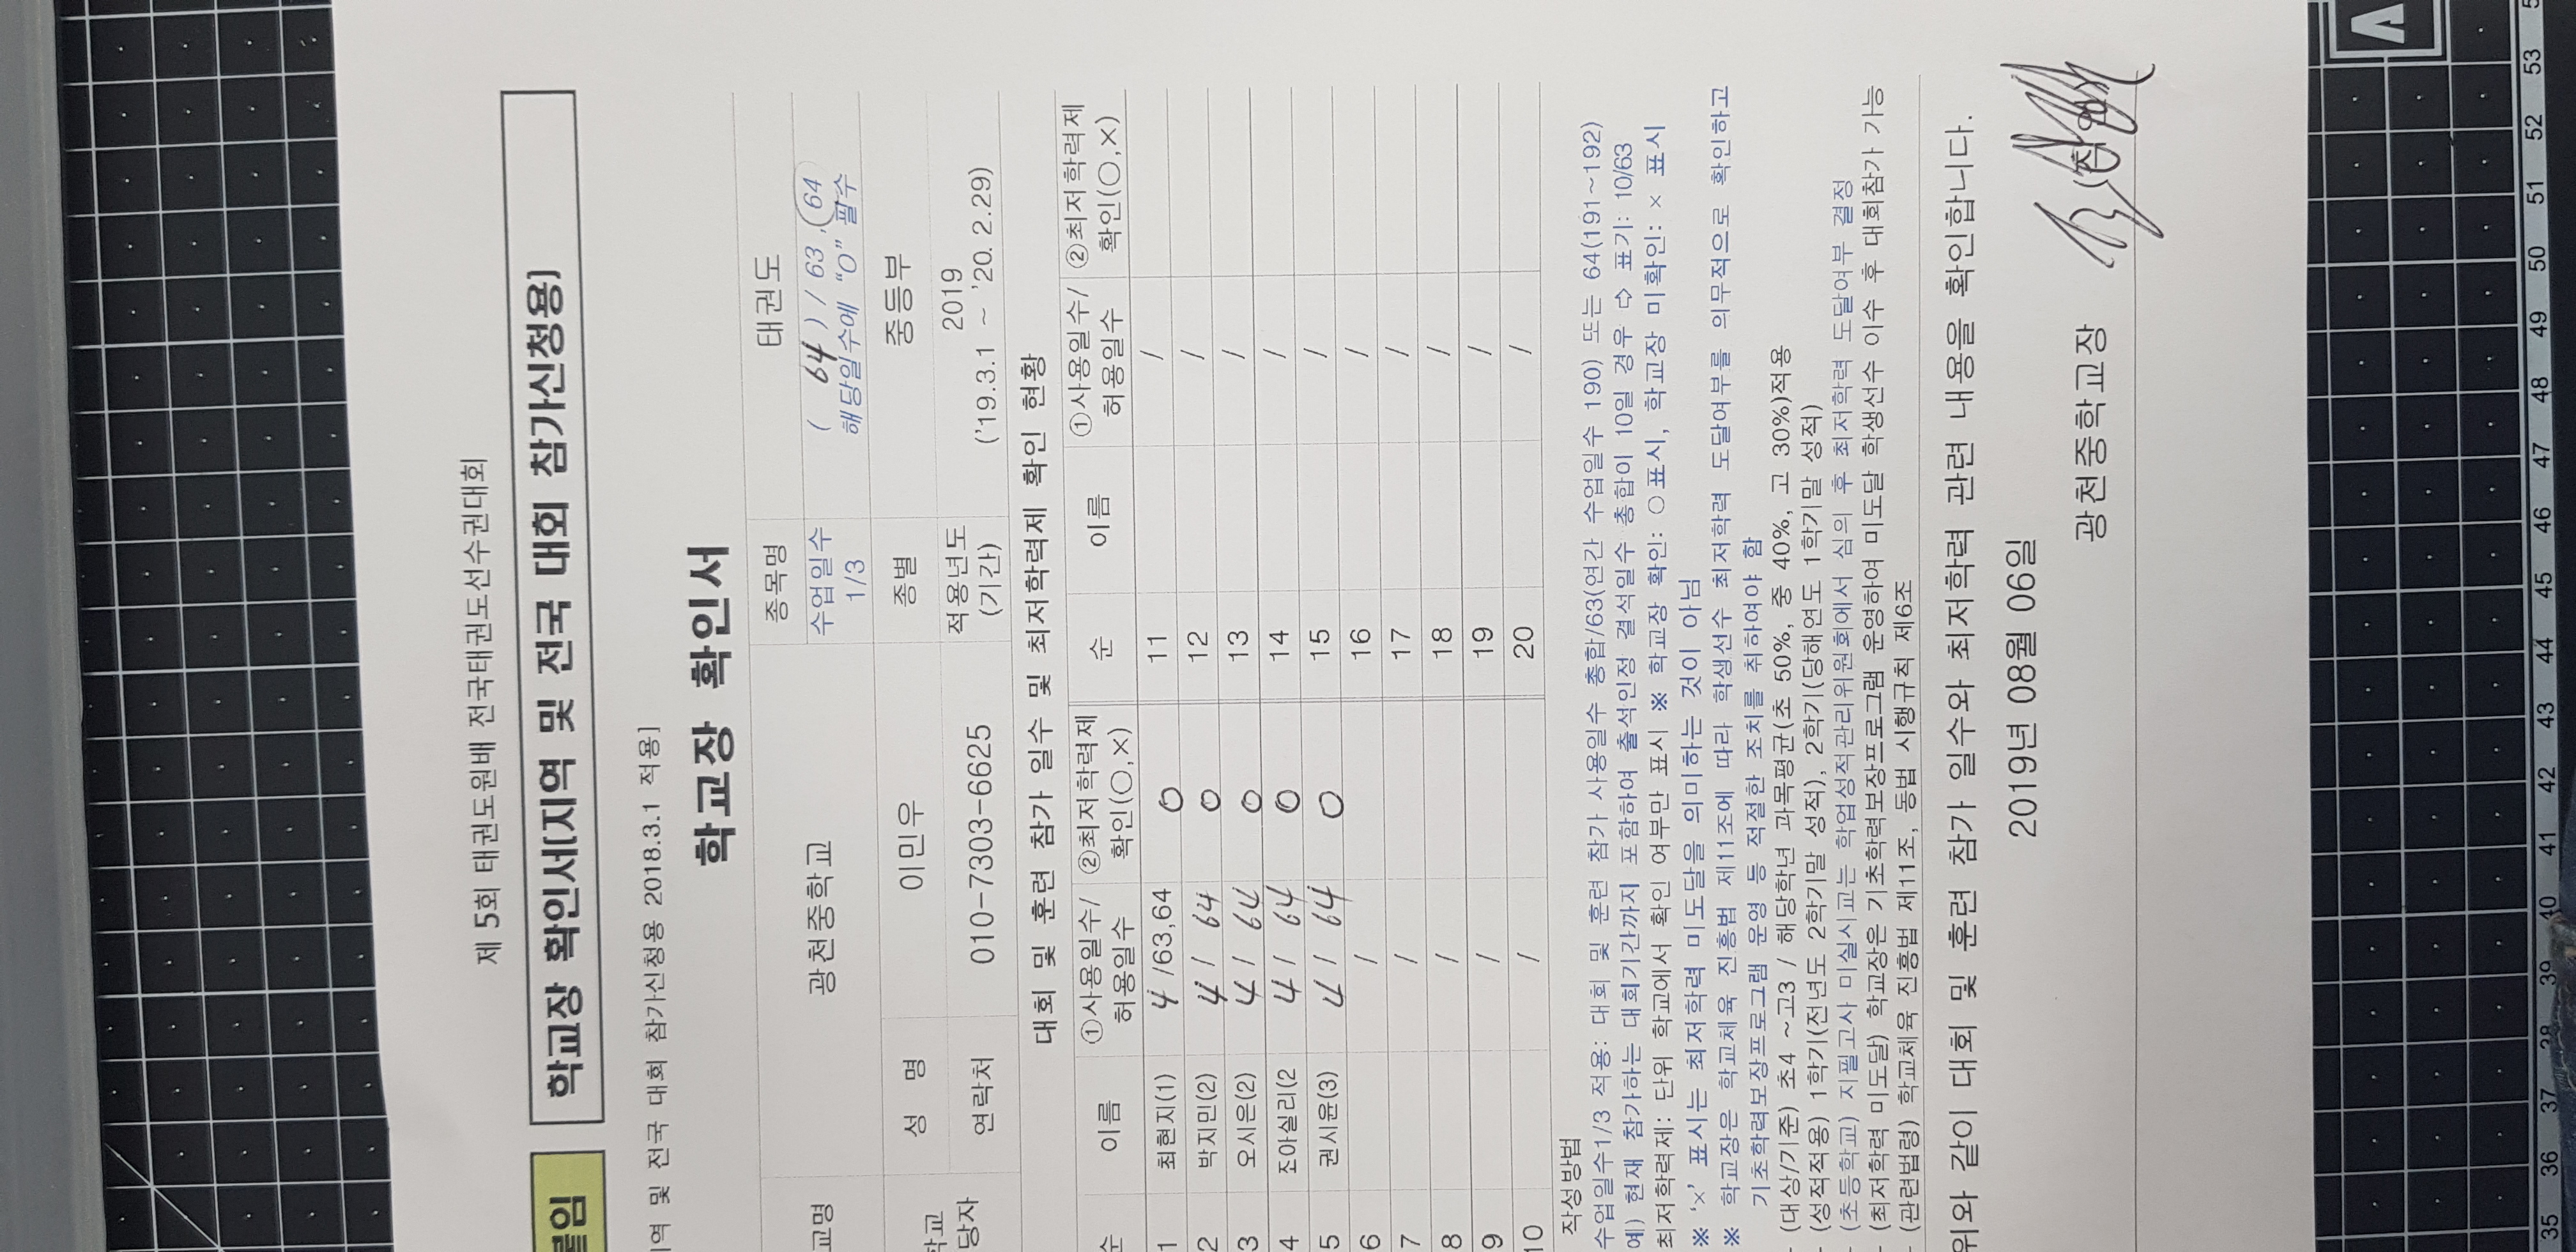 제 5회 태권도원배 전국태권도선수권대회
붙임 학교장 확인서(지역 및 전국 대회 참가신청용)
지역 및 전국 대회 참가신청용 2018.3.1 적용]
학교장 확인서
교명 광천중학교 종목명 태권도
수업일수 1/3 ( 64 ) / 63 , 64
해당일수에 "O" 필수
학교 당자 성 명 이민우 종별 중등부
연락처 010-7303-6625 적용년도 (기간) 2019
('19.3.1 ~ '20. 2.29)
대회 및 훈련 참가 일수 및 최저학력제 확인 현황
순 이름 ①사용일수/허용일수 ②최저학력제 확인(○,×) 순 이름 ①사용일수/허용일수 ②최저학력제 확인(○,×)
1 최현지(1) 4 /63,64 O 11 /
2 박지민(2) 4 / 64 O 12 /
3 오시은(2) 4 / 64 O 13 /
4 조아실리(2 4 / 64 O 14 /
5 권시윤(3) 4 / 64 O 15 /
6 / 16 /
7 / 17 /
8 / 18 /
9 / 19 /
10 / 20 /
작성방법
수업일수1/3 적용: 대회 및 훈련 참가 사용일수 총합/63(연간 수업일수 190) 또는 64(191~192)
예) 현재 참가하는 대회기간까지 포함하여 출석인정 결석일수 총합이 10일 경우 ⇨ 표기: 10/63
최저학력제: 단위 학교에서 확인 여부만 표시 ※ 학교장 확인: ○표시, 학교장 미확인: × 표시
※ '×' 표시는 최저학력 미도달을 의미하는 것이 아님
※ 학교장은 학교체육 진흥법 제11조에 따라 학생선수 최저학력 도달여부를 의무적으로 확인하고
기초학력보장프로그램 운영 등 적절한 조치를 취하여야 함
- (대상/기준) 초4 ~고3 / 해당학년 과목평균(초 50%, 중 40%, 고 30%)적용
- (성적적용) 1학기(전년도 2학기말 성적), 2학기(당해연도 1학기말 성적)
- (초등학교) 지필고사 미실시교는 학업성적관리위원회에서 심의 후 최저학력 도달여부 결정
- (최저학력 미도달) 학교장은 기초학력보장프로그램 운영하여 미도달 학생선수 이수 후 대회참가 가능
- (관련법령) 학교체육 진흥법 제11조, 동법 시행규칙 제6조
위와 같이 대회 및 훈련 참가 일수와 최저학력 관련 내용을 확인합니다.
2019년 08월 06일
광천중학교장 (직인)
35 36 37 38 39 40 41 42 43 44 45 46 47 48 49 50 51 52 53